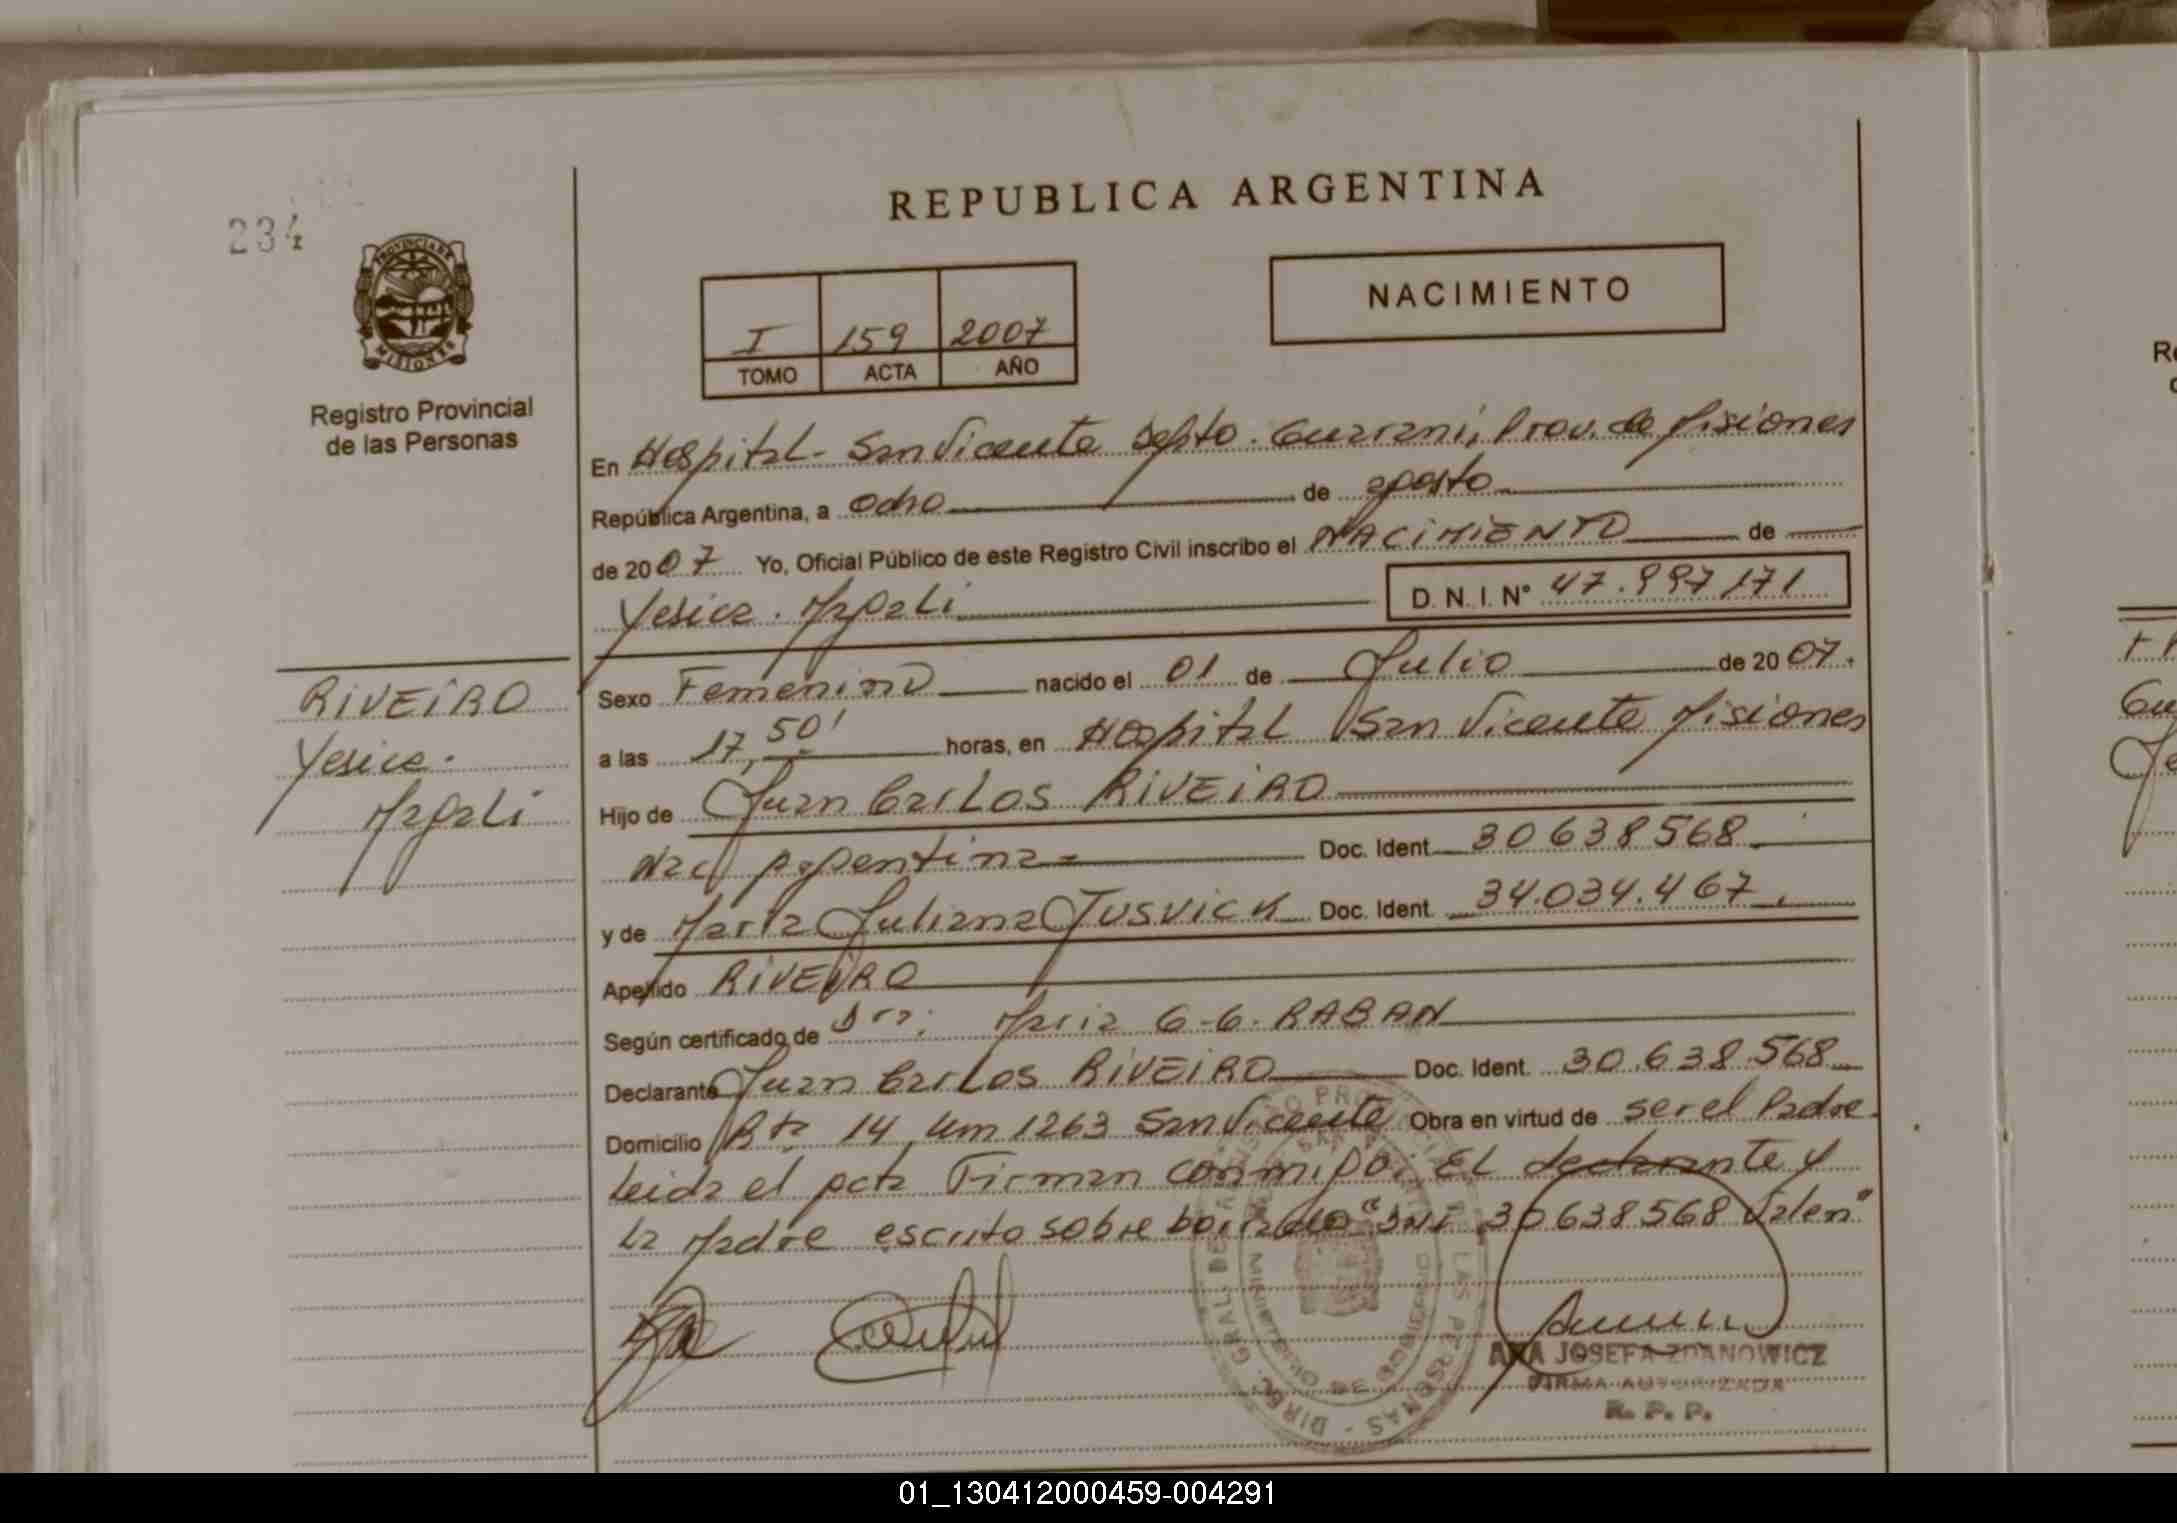 REPUBLICA ARGENTINA
234
PROVINCIA DE
MISIONES
Registro Provincial
de las Personas
I 159 2007
TOMO ACTA AÑO
NACIMIENTO
En Hospital - San Vicente Depto. Guarani, Prov. de Misiones
República Argentina, a ocho de agosto
de 2007 Yo, Oficial Público de este Registro Civil inscribo el NACIMIENTO de
Yesica. Magali D. N. I. N° 47.997171
RIVEIRO
Yesica.
Magali
Sexo Femenino nacido el 01 de Julio de 2007.
a las 17,50' horas, en Hospital San Vicente Misiones
Hijo de Juan Carlos RIVEIRO
Nac Argentina= Doc. Ident 30638568.
y de Maria Juliana JUSVICK Doc. Ident. 34.034.467.
Apellido RIVEIRO
Según certificado de Dra. Maria G-G. RABAN
Declarante Juan Carlos RIVEIRO Doc. Ident. 30.638.568
Domicilio Rta 14 Km 1263 San Vicente Obra en virtud de ser el Padre.
Leida el acta Firman conmigo. EL declarante y
La Madre escrito sobre borrado "DNI 30638568 Valen"
ANA JOSEFA ZDANOWICZ
FIRMA AUTORIZADA
R. P. P.
01_130412000459-004291